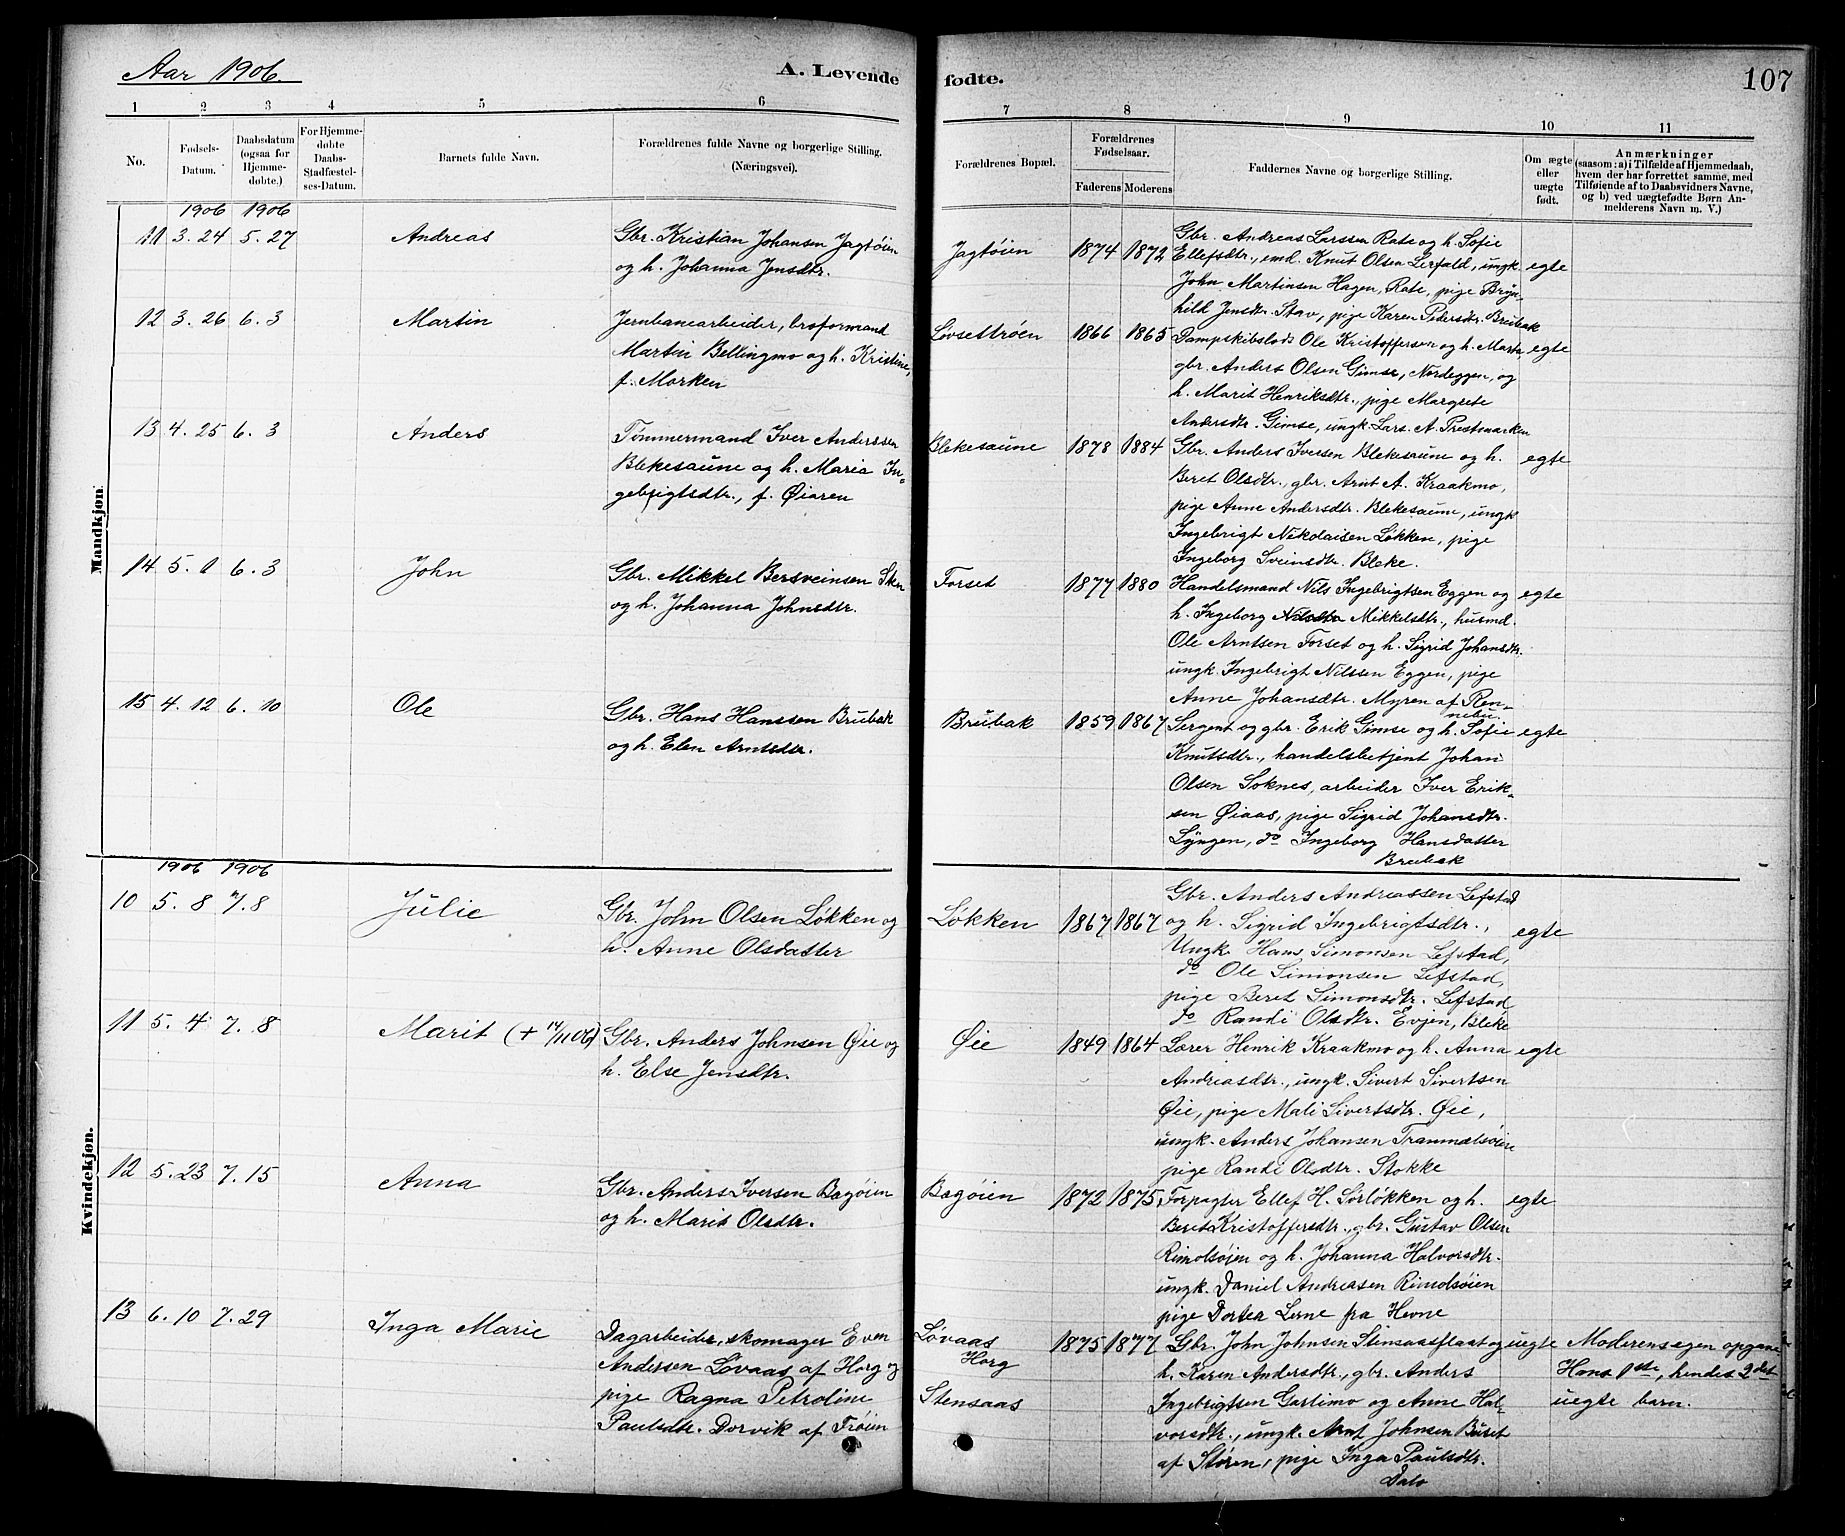 Aar 1906.
A. Levende fødte.
107
1 2 3 4 5 6 7 8 9 10 11
No.
Fødsels-Datum.
Daabsdatum (ogsaa for Hjemme-døbte.)
For Hjemme-døbte Daabs-Stadfæstel-ses-Datum.
Barnets fulde Navn.
Forældrenes fulde Navne og borgerlige Stilling.
(Næringsvei).
Forældrenes Bopæl.
Forældrenes Fødselsaar.
Faderens Moderens
Faddernes Navne og borgerlige Stilling.
Om ægte eller uægte født.
Anmærkninger
(saasom: a) i Tilfælde af Hjemmedaab, hvem der har forrettet samme, med Tilføiende af to Daabsvidners Navne, og b) ved uægtefødte Børn An-melderens Navn m. V.)
Mandkjøn.
1906 1906
11 3.24 5.27 Andreas
Gbr. Kristian Johansen Jagtøien
og h. Johanna Jensdtr.
Jagtøien 1874 1872
Gbr. Andreas Larssen Rate og h. Sofie
Ellefsdtr., eml. Knut Olsen Lerfald, ungk. egte
John Martinsen Hagen, Rate, pige Bryn-
hild Jensdtr. Stav, pige Karen Pedersdtr. Brubak
12 3.26 6.3 Martin
Jernbanearbeider, broformand
Martin Bellingmo og h. Kristine,
f. Morken
Løvsettrøen 1866 1865
Dampskibslods Ole Kristoffersen og h. Marta, egte
gbr. Anders Olsen Gimse, Nordeggen, og
h. Marit Henriksdtr., pige Margrete
Andersdtr. Gimse, ungk. Lars A. Prestmarken
13 4.25 6.3 Anders
Tømmermand Iver Anderssen
Blekesaune og h. Maria In-
gebrigtsdtr., f. Øiaren
Blekesaune 1878 1884
Gbr. Anders Iversen Blekesaune og h. egte
Beret Olsdtr., gbr. Arnt A. Kraakmo,
pige Anne Andersdtr. Blekesaune, ungk
Ingebrigt Nikolaisen Løkken, pige
Ingeborg Sveinsdtr. Bleke.
14 5.1 6.3 John
Gbr. Mikkel Bersveinsen Sken
og h. Johanna Johnsdtr.
Forset 1877 1880
Handelsmand Nils Ingebrigtsen Eggen og egte
h. Ingeborg Mikkelsdtr., husmd.
Ole Arntsen Forset og h. Sigrid Johansdtr.
ungk. Ingebrigt Nilssen Eggen, pige
Anne Johansdtr. Myren af Ren-
nebu
15 4.12 6.10 Ole
Gbr. Hans Hanssen Brubak
og h. Elen Arntsdtr.
Brubak 1859 1867
Sergent og gbr. Erik Gimse og h. Sofie egte
Knutsdtr., handelsbetjent Johan
Olsen Soknes, arbeider Iver Erik-
sen Øiaas, pige Sigrid Johansdtr.
Lyngen, do Ingeborg Hansdatter
Brubak
Kvindekjøn.
1906 1906
10 5.8 7.8 Julie
Gbr. John Olsen Løkken og
h. Anne Olsdatter
Løkken 1867 1867
Gbr. Anders Andreassen Lefstad
og h. Sigrid Ingebrigtsdtr., egte
Ungk. Hans Simonsen Lefstad,
do Ole Simonsen Lefstad,
pige Beret Simonsdtr. Lefstad
do Randi Olsdtr. Evjen, Bleke
11 5.4 7.8 Marit (+ 14/11 06)
Gbr. Anders Johnsen Øie og
h. Else Jensdtr.
Øie 1849 1864
Lærer Henrik Kraakmo og h. Anna egte
Andreasdtr., ungk. Sivert Sivertsen
Øie, pige Mali Sivertsdtr. Øie,
ungk. Anders Johansen Tranmælsøien
pige Randi Olsdtr. Stokke
12 5.23 7.15 Anna
Gbr. Anders Iversen Bagøien
og h. Marit Olsdtr.
Bagøien 1872 1875
Forpagter Ellef H. Sørløkken og h. egte
Beret Kristoffersdtr., gbr. Gustav Olsen
Rimolsøien og h. Johanna Halvorsdtr.
ungk. Daniel Andreasen Rimolsøien
pige Dortea Lerne fra Hevne
13 6.10 7.29 Inga Marie
Dagarbeider, skomager Even
Andersen Løvaas af Horg og
pige Ragna Petroline
Paulsdtr. Dorvik af Frøien
Løvaas
Horg
Stensaas
1875 1877
Gbr. John Johnsen Stensaasflaat og uegte
h. Karen Andersdtr., gbr. Anders
Ingebrigtsen Garlimo og Anne Hal-
vorsdtr., ungk. Arnt Johnsen Buret
af Støren, pige Inga Paulsdtr.
Dalo
Moderens egen opgave
Hans 1ste, hendes 2det
uegte barn.